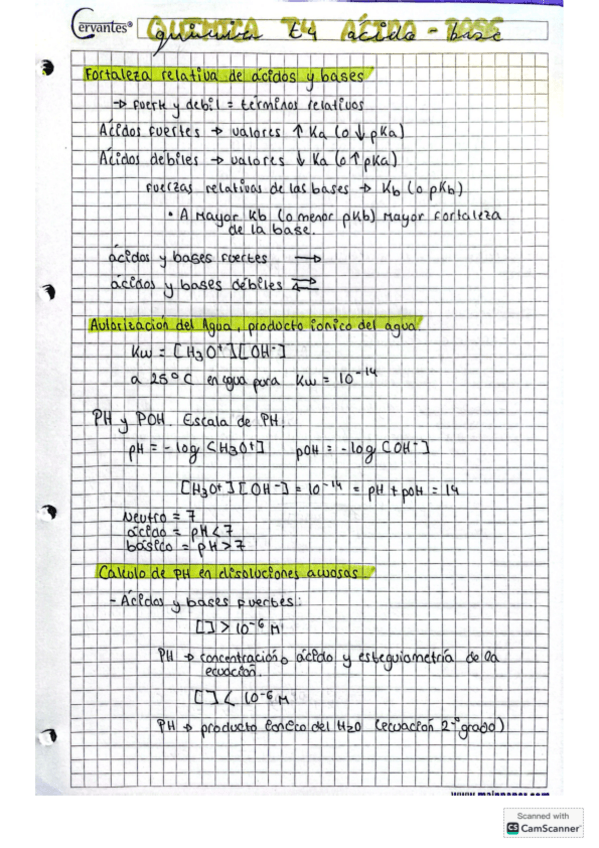 Cervantes®
QUIMICA T4 ÁCIDO - BASE
química t4 ácido - base
Fortaleza relativa de ácidos y bases
→ fuerte y debil = términos relativos
Ácidos fuertes → valores ↑ Ka (o ↓ pKa)
Ácidos débiles → valores ↓ Ka (o ↑ pKa)
fuerzas relativas de las bases → Kb (o pKb)
• A mayor Kb (o menor pKb) mayor fortaleza
de la base.
ácidos y bases fuertes →
ácidos y bases débiles ⇄
Autorización del Agua, producto iónico del agua
Kw = [H3O+][OH-]
a 25°C en agua pura Kw = 10^-14
PH y POH. Escala de PH.
pH = -log [H3O+] pOH = -log [OH-]
[H3O+][OH-] = 10^-14 = pH + pOH = 14
Neutro = 7
ácido = pH < 7
básico = pH > 7
Calculo de PH en disoluciones acuosas
- Ácidos y bases fuertes:
[ ] > 10^-6 M
PH → concentración ácido y estequiometría de la
ecuación.
[ ] < 10^-6 M
PH → producto iónico del H2O (ecuación 2º grado)
Scanned with
CS CamScanner